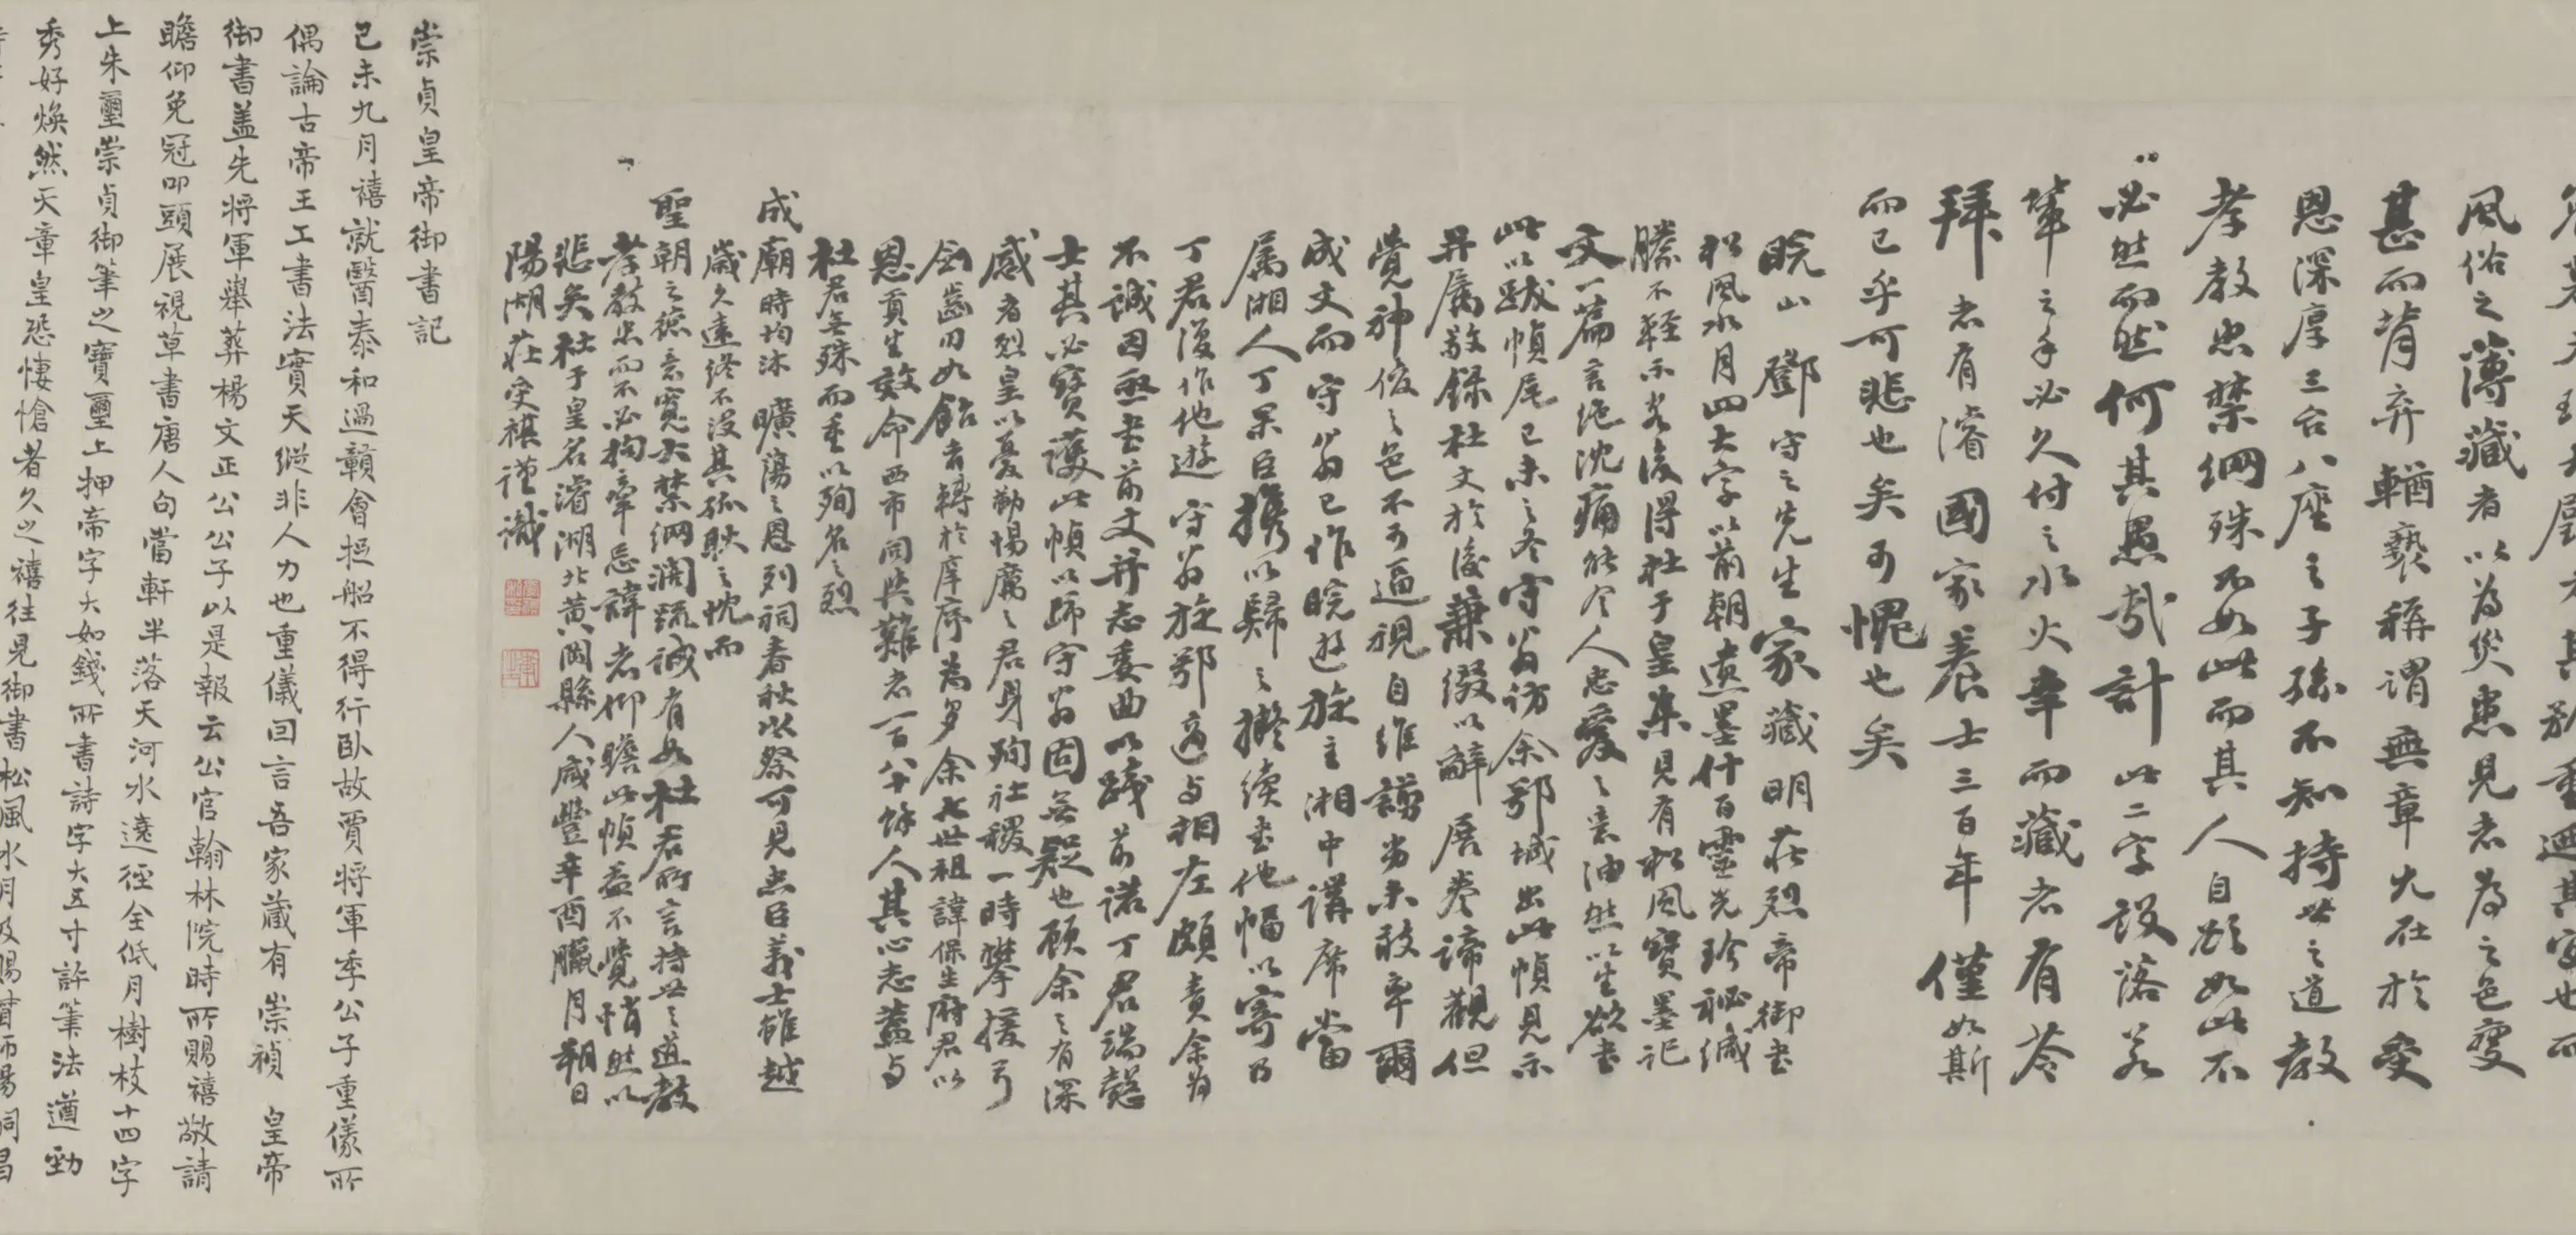 風俗之薄藏者以為災患見者為之色變
甚而背弃輶褻稱謂無章尤在於受
恩深厚三台八座之子孫不知持世之道教
孝教忠禁網殊不如此而其人自頗如此不
必然而然何其愚哉計此二字設落若
輩之手必久付之水火幸而藏者有苓
拜者有濬國家養士三百年僅如斯
而已乎可悲也矣可愧也矣
皖山鄧守之先生家藏明莊烈帝御書
松風水月四大字以前朝遺墨什百靈光珍秘緘
縢不輕示客後得杜于皇集見有松風寶墨記
文一篇言絶沈痛能令人忠愛之意油然以生欲書
此以跋幀尾己未之冬守翁訪余鄂城出此幀見示
并屬敬錄杜文於後兼綴以辭展卷諦觀但
覺神俊之色不可逼視自維譾劣未敢率爾
成文而守翁已作皖遊旋主湘中講席當
屬湘人丁杲臣攜以歸之擬續書他幅以寄乃
丁君復作他遊守翁旋鄂適与相左頗責余為
不誠因亟書前文并志委曲以踐前諾丁君端慤
士其必寶護此幀以歸守翁固無疑也顧余之有深
感者烈皇以憂勤惕厲之君身殉社稷一時攀援弓
劍齒刃如飴者轉於庠序為多余七世祖諱保生府君以
恩貢生效命西市同與難者一百八十餘人其心志蓋与
杜君無殊而重以殉名之烈
成廟時均沐曠蕩之恩列祠春秋以祭可見忠臣義士雖越
歲久遠終不沒其孤耿之忱而
聖朝之德意寬大禁網濶疏誠有如杜君所言持世之道教
孝教忠而不必拘牽忌諱者仰瞻此幀益不覺悄然以
悲矣杜于皇名濬湖北黃岡縣人咸豐辛酉臘月朔日
陽湖莊受祺謹識
崇貞皇帝御書記
己未九月禧就醫泰和過贛會拒船不得行臥故賈將軍季公子重儀所
偶論古帝王工書法實天縱非人力也重儀回言吾家藏有崇禎皇帝
御書蓋先將軍舉葬楊文正公公子以是報云公官翰林院時所賜禧敬請
瞻仰免冠叩頭展視草書唐人句當軒半落天河水遶徑全低月樹枝十四字
上朱璽崇貞御筆之寶璽上押帝字大如錢所書詩字大五寸許筆法遒勁
秀好煥然天章皇恐悽愴者久之禧往見御書松風水月及賜